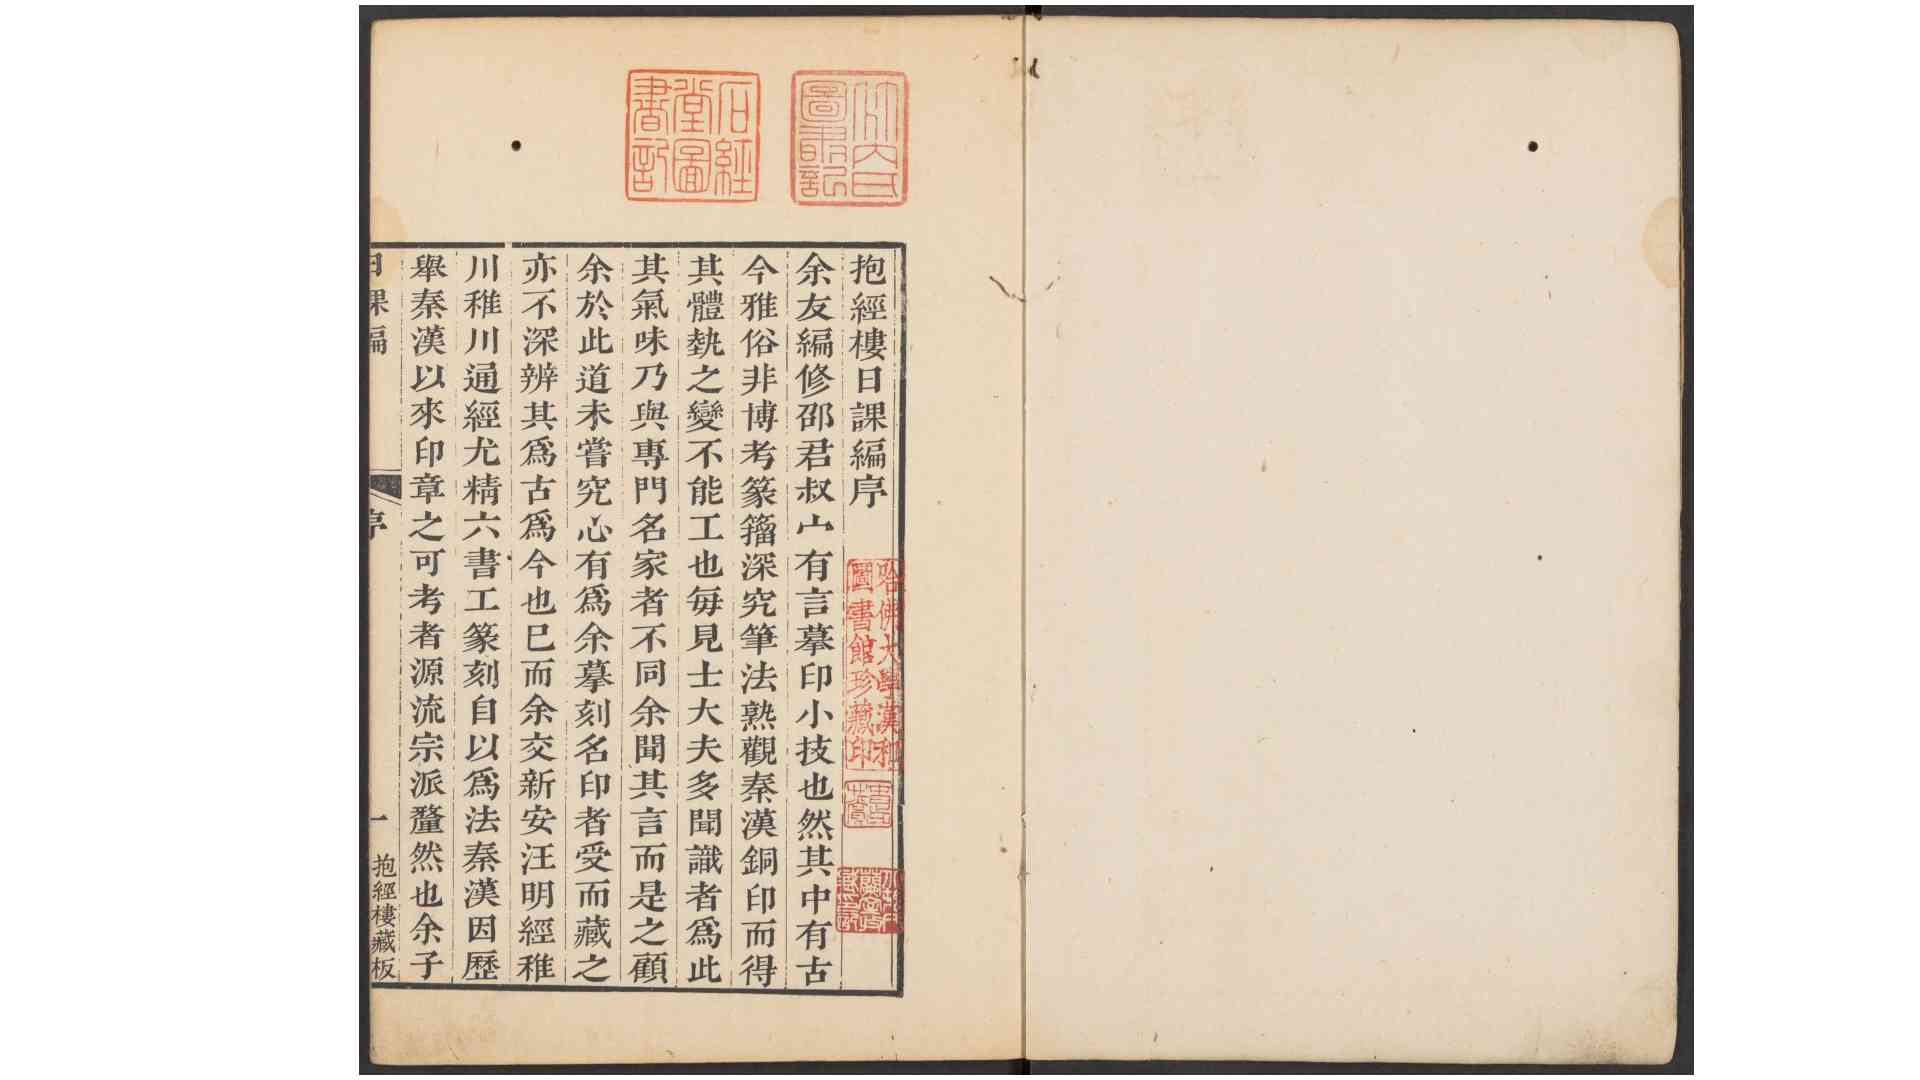 抱經樓日課編序
余友編修邵君叔宀有言摹印小技也然其中有古
今雅俗非博考篆籀深究筆法熟觀秦漢銅印而得
其體埶之變不能工也每見士大夫多聞識者爲此
其氣味乃與專門名家者不同余聞其言而是之顧
余於此道未嘗究心有爲余摹刻名印者受而藏之
亦不深辨其爲古爲今也巳而余交新安汪明經稚
川稚川通經尤精六書工篆刻自以爲法秦漢因歷
舉秦漢以來印章之可考者源流宗派釐然也余子
日課編
序
一
抱經樓藏板
石經堂圖書記
竹內氏圖書記
哈佛大學漢和圖書館珍藏印